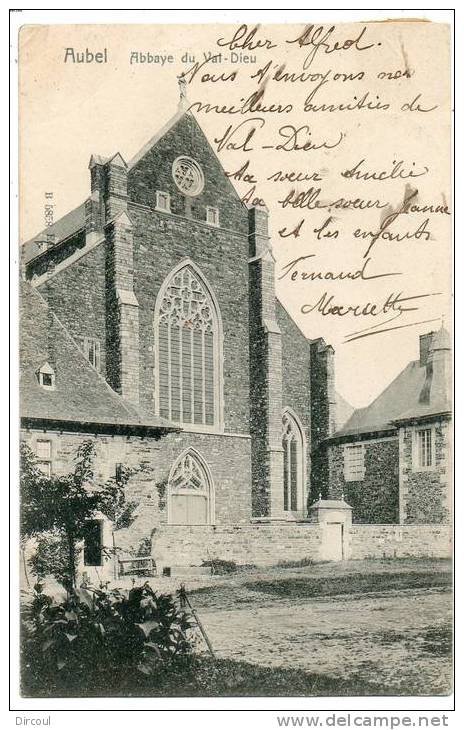 Aubel Abbaye du Val-Dieu
Cher Alfred.
Nous t'envoyons nos
meilleurs amitiés de
Val-Dieu
ta sœur Amélie
ta belle sœur Jeanne
et les enfants
Fernand
Marsette
Dircoul
http://www.delcampe.net